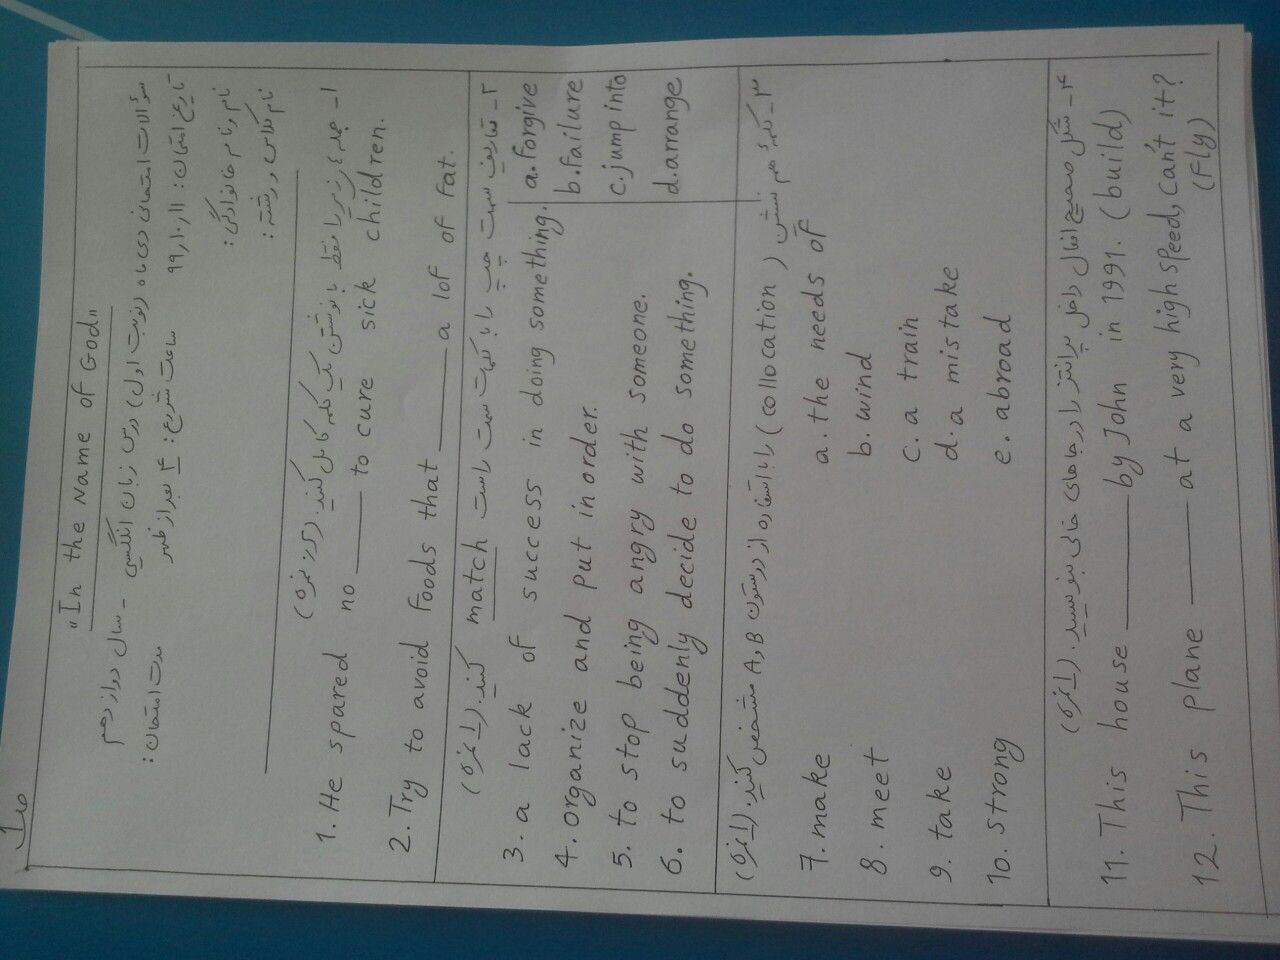 ص۱
"In the Name of God"
سؤالات امتحانی دی ماه (نوبت اول) درس زبان انگلیسی - سال دوازدهم
تاریخ امتحان: ۹۹/۱۰/۱۱ ساعت شروع: ۴ بعد از ظهر مدت امتحان:
نام و نام خانوادگی:
نام کلاس و رشته:
۱- جملات زیر را فقط با نوشتن یک کلمه کامل کنید. (۰/۵ نمره)
1. He spared no ____ to cure sick children.
2. Try to avoid foods that ____ a lof of fat.
۲- تعاریف سمت چپ را با کلمات سمت راست match کنید. (۱ نمره)
3. a lack of success in doing something. a. forgive
4. organize and put in order. b. failure
5. to stop being angry with someone. c. jump into
6. to suddenly decide to do something. d. arrange
۳- کلمهٔ هم نشین (collocation) را با استفاده از دو ستون A, B مشخص کنید. (۱ نمره)
7. make a. the needs of
8. meet b. wind
9. take c. a train
10. strong d. a mistake
e. abroad
۴- شکل صحیح افعال داخل پرانتز را در جاهای خالی بنویسید. (۱ نمره)
11. This house ____ by John in 1991. (build)
12. This plane ____ at a very high speed, can't it? (Fly)